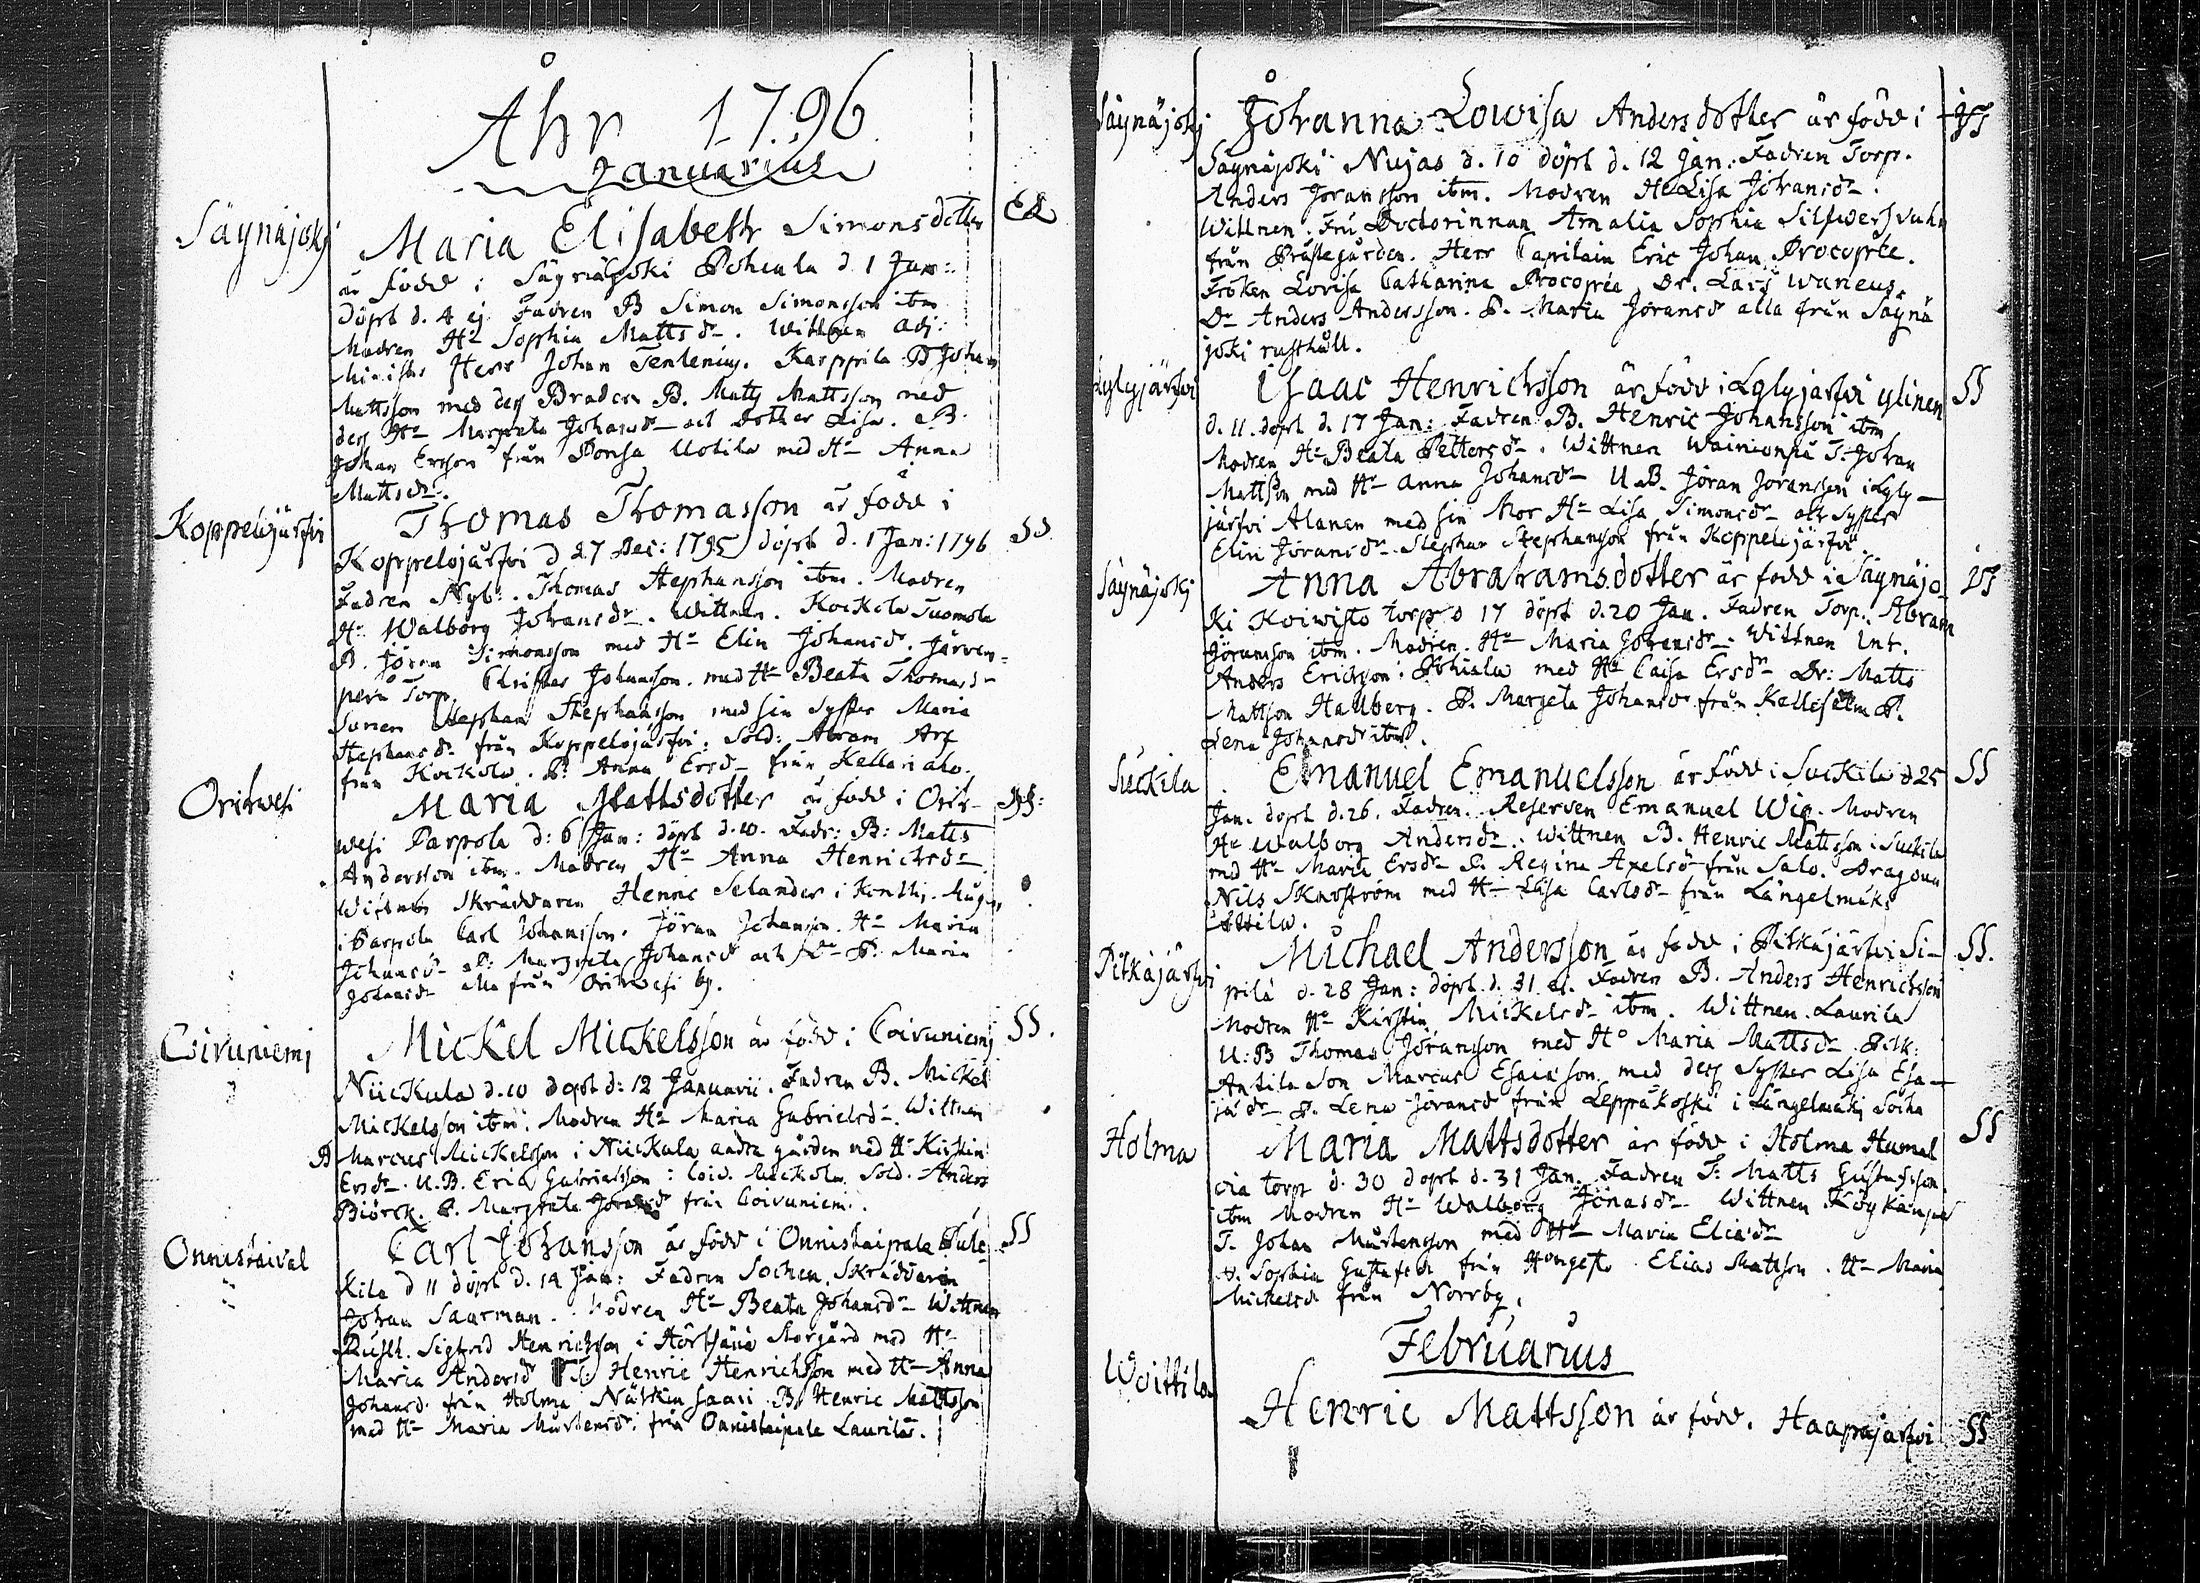 Åhr 1796
Januarius
Säynäjoki
Maria Elisabeth Simonsdotter
E L
är född i Säynäjoki Pohiala d. 1 Jan:
döpt d. 4 ej. Fadren B Simon Simonsson itm
Modren Hu Sophia Mattsdr. Wittnen Adj:
Minister Herr Johan Tenlenius. Karppila B Johan
Mattsson med des Broder B. Matts Mattsson med
des Hu Margeta Johansdr och dotter Lisa. B.
Johan Ersson från Ponsa Uotila med Hu Anna
Mattsdr.
Koppelojärfvi
Thomas Thomasson är född i
SS
Koppelojärfvi d 27 Dec: 1795 döpt d. 1 Jan: 1796
Fadren Nyb: Thomas Stephansson itm. Modren
Hu Walborg Johansdr. Wittnen. Kockola Tuomola
B. Jöran Simonsson med Hu Elin Johansdr. Järven-
perä Torp. Christer Johansson med Hu Beata Thomasdr
Sonen Stephan Stephansson med sin Syster Maria
Stephansdr från Koppelojärfvi. Sold: Abram Arg
från Kockola. P. Anna Ersdr från Kellariaho.
Orihwesi
Maria Mattsdotter är född i Orih-
wesi Parpola d: 6 Jan: döpt d. 10. Fadr: B: Matts
Andersson itm. Modren Hu Anna Henrichsdr
Wittnen Skräddaren Henric Selander i
i Parpola Carl Johansson. Jöran Johansson. Hu Maria
Johansdr P: Margreta Johansdr och P. Maria
Johansdr alla från Orihwesi by.
Coivuniemi
Mickel Mickelsson är född i Coivuniemi
SS.
Niickula d. 10 döpt d: 12 Januarii. Fadren B. Mickel
Mickelsson itm. Modren Hu Maria Gabrielsdr. Wittnen
B Marcus Mickelsson i Niickula andra gården med Hu Kirstin
Ersdr. U.B. Eric Gabrielsson i Coiv. Sold. Anders
Biörck. P. Margreta från Coivuniemi.
Onnistaival
Carl Johansson är född i Onnistaipale
SS
kila d 11 döpt d. 14 Jan: Fadren Sochen Skräddaren
Johan Saarman. Modren Hu Beata Johansdr Wittnen
Rusth. Sigfrid Henrichsson i Storgård med Hu
Maria Andersdr T: Henric Henrichsson med Hu Anna
Johansd. från Holma saari B. Henric Mattsson
med Hu Maria Mårtensdr. från Onnistaipale Laurila.
Säynäjoki
Johanna Lowisa Andersdotter är född i
Säynäjoki Nujas d. 10 döpt d. 12 Jan: Fadren Torp.
Anders Joransson itm. Modren Hu Lisa Johansdr.
Wittnen. Fru Doctorinnan Amalia Sophia
från Prästegården. Herr Capitain Eric Johan Procopée.
Fröken Lovisa Catharina Procopéa Dr. Lars Waneus.
Dr Anders Andersson. P. Maria Joransdr alla från Säynä
joki rusthåll.
Isaac Henrichsson är född i Lylyjärfvi ylinen
SS
d. 11. döpt d. 17 Jan: Fadren B. Henric Johansson itm
Modren Hu Beata Pettersdr. Wittnen Wainionpä T. Johan
Mattsson med Hu Anna Johansdr U. B. Jöran Joransson i Lyly-
järfvi Alanen med sin Mor Hu Lisa Simonsdr och Syster
Elin Joransdr. Stephan Stephansson från Koppelojärfvi.
Säynäjoki
Anna Abrahamsdotter är född i Säynäjo-
ki Koiwisto torp d 17 döpt d. 20 Jan. Fadren Torp. Abram
Joransson itm. Modren. Hu Maria Joransdr. Wittnen Int.
Anders Ericsson i Pohiala med Hu Caisa Ersdr Dr: Matts
Mattson Hallberg. P. Margeta Johansdr från P.
Lena Johansdr itm.
Suckila
Emanuel Emanuelsson är född i Suckila d 25
SS
Jan. döpt d. 26. Fadren. Reserven Emanuel Wig. Modren
Hu Walborg Andersdr. Wittnen B. Henric Mattsson i Suckila
med Hu Maria Ersdr P. Regina Axelsdr från Salo. Dragoun
Nils med Hu Lisa Carlsdr från Längelmäki
Attila.
Pitkäjärfvi
Michael Andersson är född i Pitkäjärfvi Si-
SS.
pilä d. 28 Jan: döpt d. 31 Fadren B. Anders Henrichsson
Modren Hu Kirstin Mickelsdr itm. Wittnen. Laurila
U: B Thomas Joransson med Hu Maria Mattsdr. Pitk:
Antila Son Marcus Esaiason med des Syster Lisa Esa-
jædr P. Lena Joransd från Leppäkoski i Längelmäki Sochn
Holma
Maria Mattsdotter är född i Holma Humal
SS
oia torp d. 30 döpt d. 31 Jan. Fadren T: Matts Gustafsson
itm Modren Hu Walborg Jonasdr Wittnen
T. Johan Mårtensson med Hu Maria Eliaedr
P. Sophia Gustafsdr från Hongisto Elias Mattson. Hu Maria
Mickelsd från Norrby.
Februarius
Woittila
Henric Mattsson är född. Haapajärfvi
SS